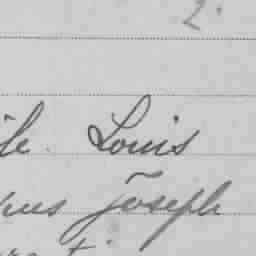 2.
le. Louis
us Joseph